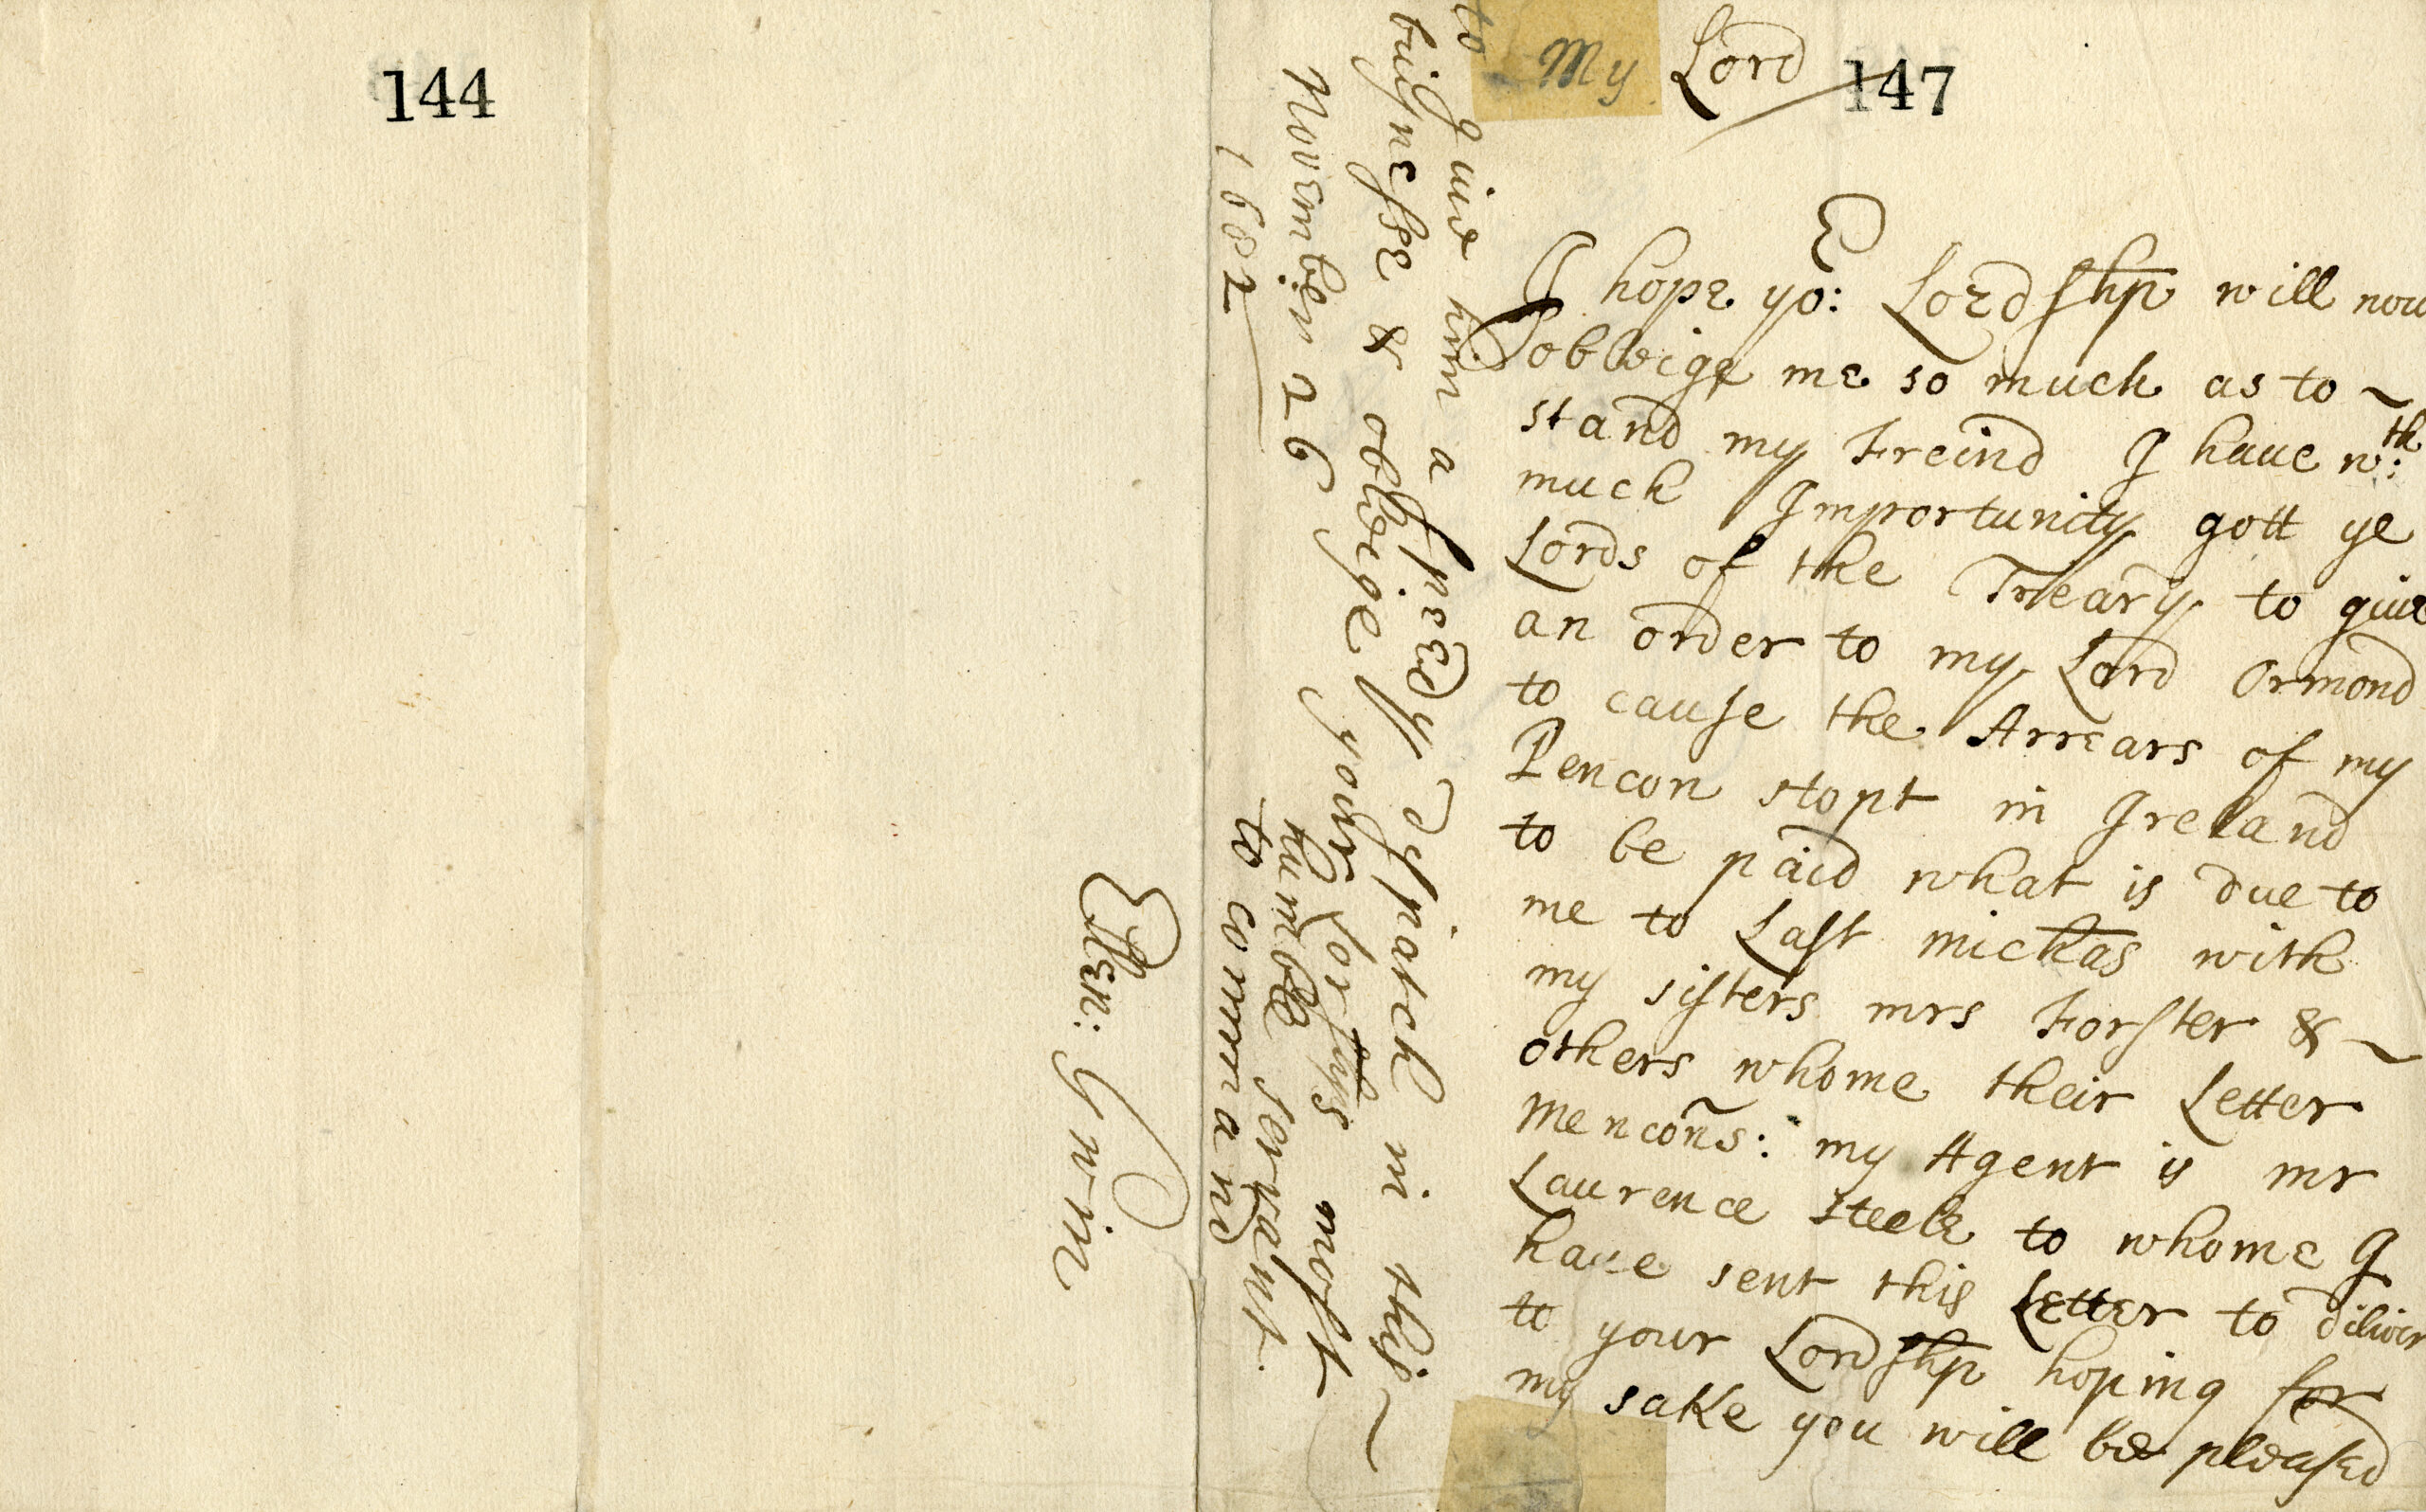 144
147
My Lord
I hope yo: Lordshp will now
obleige me so much as to
stand my Freind I have wth:
much Importunity gott ye
Lords of the Treary to give
an order to my Lord Ormond
to cause the Arrears of my
Pencon stopt in Ireland
to be paid what is due to
me to Last michas with
my sisters mrs Forster &
others whome their Letter
Mencons: my Agent is mr
Laurence Steele to whome I
have sent this Letter to diliver
to your Lordshp hoping for
my sake you will be pleased
to give him a speedy dispatch in this
buisnesse & obleige your Lorshys most
humble servant
to command
November 26
1682
Ellen: Gwin